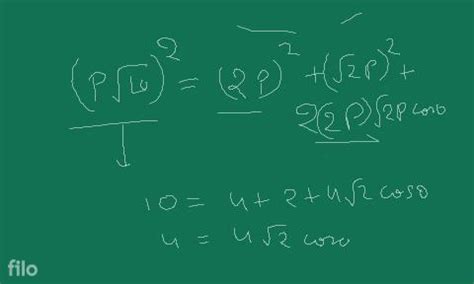 (P√10)² = (2P)² + (√2P)² +
2(2P)√2P cosθ
10 = 4 + 2 + 4√2 cosθ
4 = 4√2 cosθ
filo